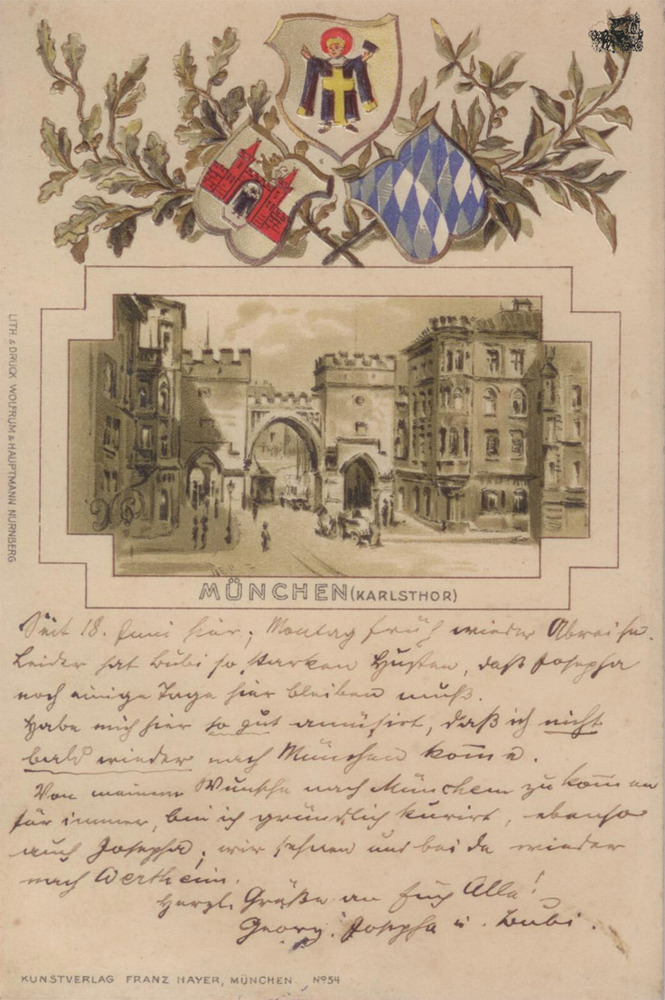 LITH. & DRUCK WOLFRUM & HAUPTMANN NÜRNBERG
MÜNCHEN (KARLSTHOR)
Seit 18. Juni hier; Montag früh wieder Abreise.
Leider hat Bubi so starken Husten, daß Josepha
noch einige Tage hier bleiben muß.
Habe mich hier so gut amüsirt, daß ich nicht
bald wieder nach München kom̄e.
Von meinem Wunsche nach München zu kom̄en
für immer, bin ich gründlich kurirt, ebenso
auch Josepha; wir sehnen uns beide wieder
nach Wertheim.
Herzl. Grüße an Euch Alle!
Georg, Josepha u. Bubi.
KUNSTVERLAG FRANZ HAYER, MÜNCHEN. No 54